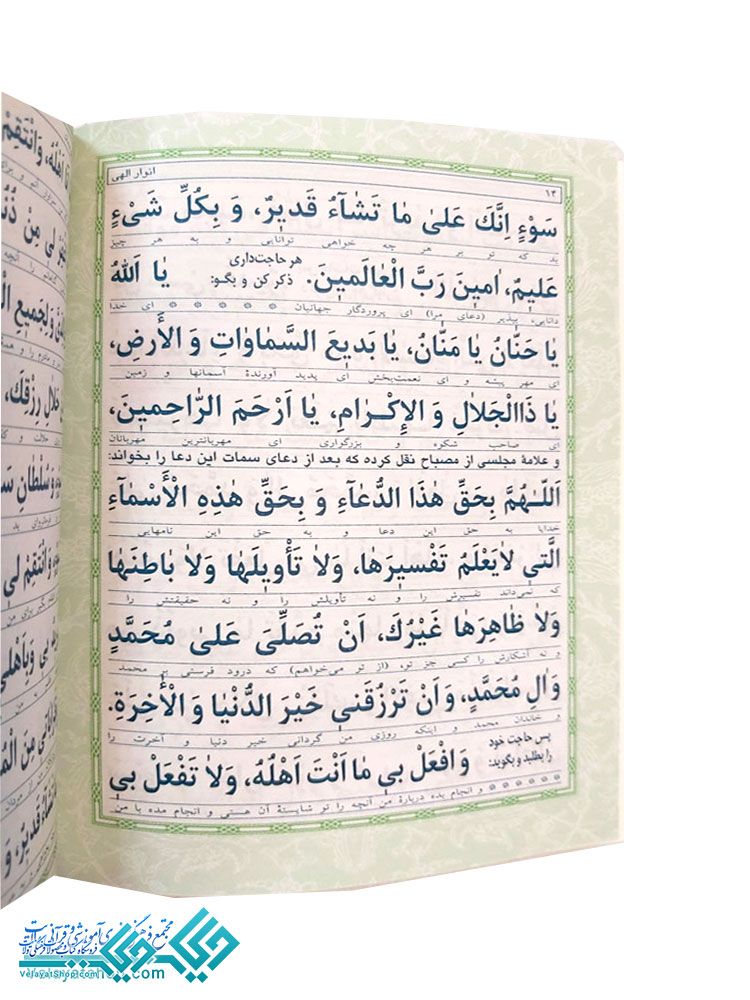 ۱۴ انوار الهی
سَوْءٍ اِنَّكَ عَلىٰ مٰا تَشٰآءُ قَدیرٌ، وَ بِكُلِّ شَیْءٍ
بد که تو بر هر چه خواهی توانایی و به هر چیز
عَلیمٌ، اٰمینَ رَبَّ الْعٰالَمینَ. هر حاجت‌داری ذکر کن و بگو: یٰا اَللّٰهُ
دانایی، بپذیر (دعای مرا) ای پروردگار جهانیان * * * * * * ای خدا
یٰا حَنّٰانُ یٰا مَنّٰانُ، یٰا بَدیعَ السَّمٰاوٰاتِ وَ الأَرضِ،
ای مهر پیشه و ای نعمت‌بخش ای پدید آورندهٔ آسمانها و زمین
یٰا ذَاالْجَلاٰلِ وَ الإِكْرٰامِ، یٰا اَرْحَمَ الرّٰاحِمینَ،
ای صاحب شکوه و بزرگواری ای مهربانترین مهربانان
و علامهٔ مجلسی از مصباح نقل کرده که بعد از دعای سمات این دعا را بخواند:
اَللّٰهُمَّ بِحَقِّ هٰذَا الدُّعٰآءِ وَ بِحَقِّ هٰذِهِ الْأَسْمٰآءِ
خدایا به حق این دعا و به حق این نامهایی
الَّتی لاٰیَعْلَمُ تَفْسیرَهٰا، وَلاٰ تَأْویلَهٰا وَلاٰ بٰاطِنَهٰا
که نمی‌داند تفسیرش را و نه تأویلش را و نه حقیقتش را
وَلاٰ ظٰاهِرَهٰا غَیْرُكَ، اَنْ تُصَلِّیَ عَلىٰ مُحَمَّدٍ
و نه آشکارش را کسی جز تو، (از تو می‌خواهم) که درود فرستی بر محمد
وَاٰلِ مُحَمَّدٍ، وَ اَنْ تَرْزُقَنی خَیْرَ الدُّنْیٰا وَ الْأٰخِرَةِ.
و خاندان محمد و اینکه روزی من گردانی خیر دنیا و آخرت را
پس حاجت خود را بطلبد و بگوید: وَ افْعَلْ بی مٰا اَنْتَ اَهْلُهُ، وَلاٰ تَفْعَل بی
* * * * * و انجام بده دربارهٔ من آنچه را تو شایستهٔ آن هستی و انجام مده با من
velayatshop.com